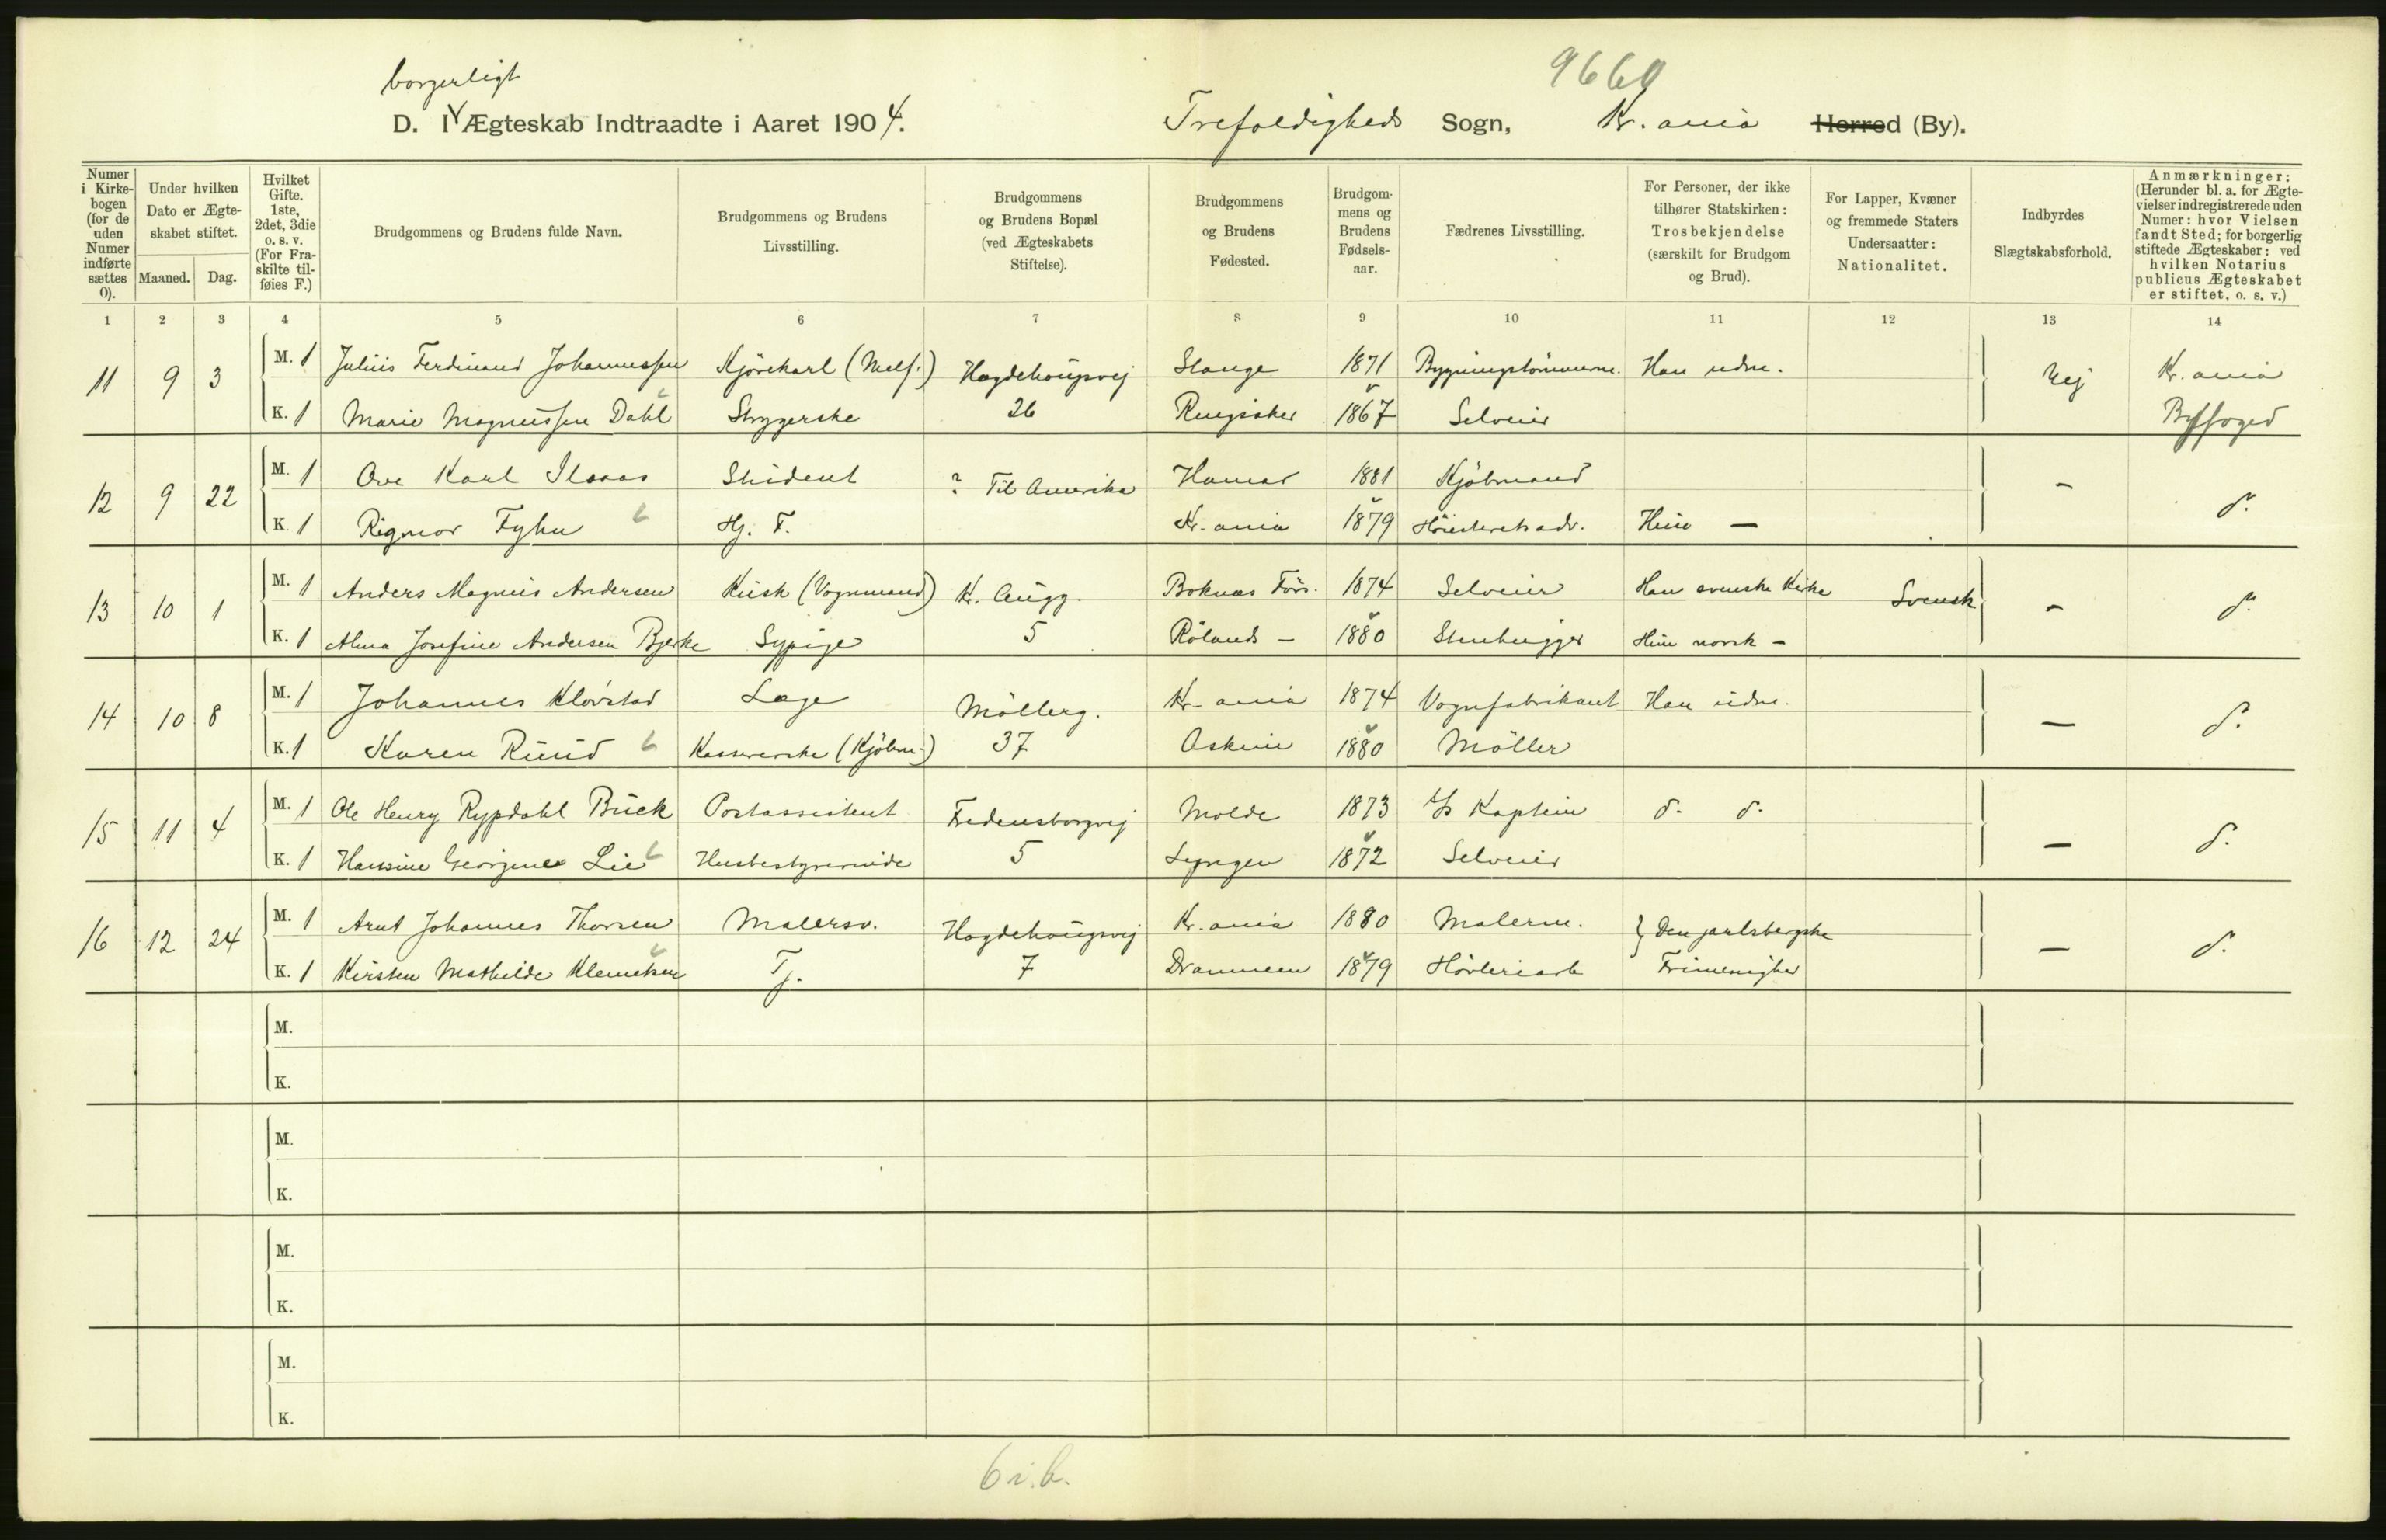 9660
borgerligt
D. I Ægteskab Indtraadte i Aaret 1904. Trefoldigheds Sogn, Kr.ania Herred (By).
Numer i Kirkebogen (for de uden Numer indførte sættes 0).
Under hvilken Dato er Ægteskabet stiftet.
Maaned. Dag.
Hvilket Gifte. 1ste, 2det, 3die o. s. v. (For Fraskilte tilføies F.)
Brudgommens og Brudens fulde Navn.
Brudgommens og Brudens Livsstilling.
Brudgommens og Brudens Bopæl (ved Ægteskabets Stiftelse).
Brudgommens og Brudens Fødested.
Brudgommens og Brudens Fødselsaar.
Fædrenes Livsstilling.
For Personer, der ikke tilhører Statskirken: Trosbekjendelse (særskilt for Brudgom og Brud).
For Lapper, Kvæner og fremmede Staters Undersaatter: Nationalitet.
Indbyrdes Slægtskabsforhold.
Anmærkninger: (Herunder bl. a. for Ægtevielser indregistrerede uden Numer: hvor Vielsen fandt Sted; for borgerlig stiftede Ægteskaber: ved hvilken Notarius publicus Ægteskabet er stiftet, o. s. v.)
1 2 3 4 5 6 7 8 9 10 11 12 13 14
11 9 3 M. 1 Julius Ferdinand Johannessen Kjørekarl (Melf.) Hegdehougsvej Stange 1871 Bygningstømmerm. Han udm. Nej Kr.ania
K. 1 Marie Magnussen Dahl Strygerske 26 Ringsaker 1867 Selveier Byfoged
12 9 22 M. 1 Ove Karl Ilsaas Student ? Til Amerika Hamar 1881 Kjøbmand - d.
K. 1 Rigmor Fyhn Hj. F. Kr.ania 1879 Høiesteretsadv. Hun —
13 10 1 M. 1 Anders Magnus Andersen Kusk (Vognmand) Kr. Augg. Boknæs Førs. 1874 Selveier Han svenske Kirke Svensk - d.
K. 1 Alma Josefine Andersen Bjerke Sypige 5 Rølands - 1880 Stenhugger Hun norsk -
14 10 8 M. 1 Johannes Kløvstad Læge Møllerg. Kr.ania 1874 Vognfabrikant Han udm. — d.
K. 1 Karen Ruud Kassererske (Kjøbm.) 37 Askim 1880 Møller
15 11 4 M. 1 Ole Henry Rypdahl Buck Postassistent Fredensborgvej Molde 1873 D/S Kaptein d. d. — d.
K. 1 Hansine Georgine Lie Husbestyrerinde 5 Lyngen 1872 Selveier
16 12 24 M. 1 Arnt Johannes Thorsen Malersv. Hegdehougsvej Kr.ania 1880 Malerm. } Den jarlsbergske — d.
K. 1 Kirsten Mathilde Klemetsen Tj. 7 Drammen 1879 Høvleriarb Frimenighed
M.
K.
M.
K.
M.
K.
M.
K.
6 i.b.